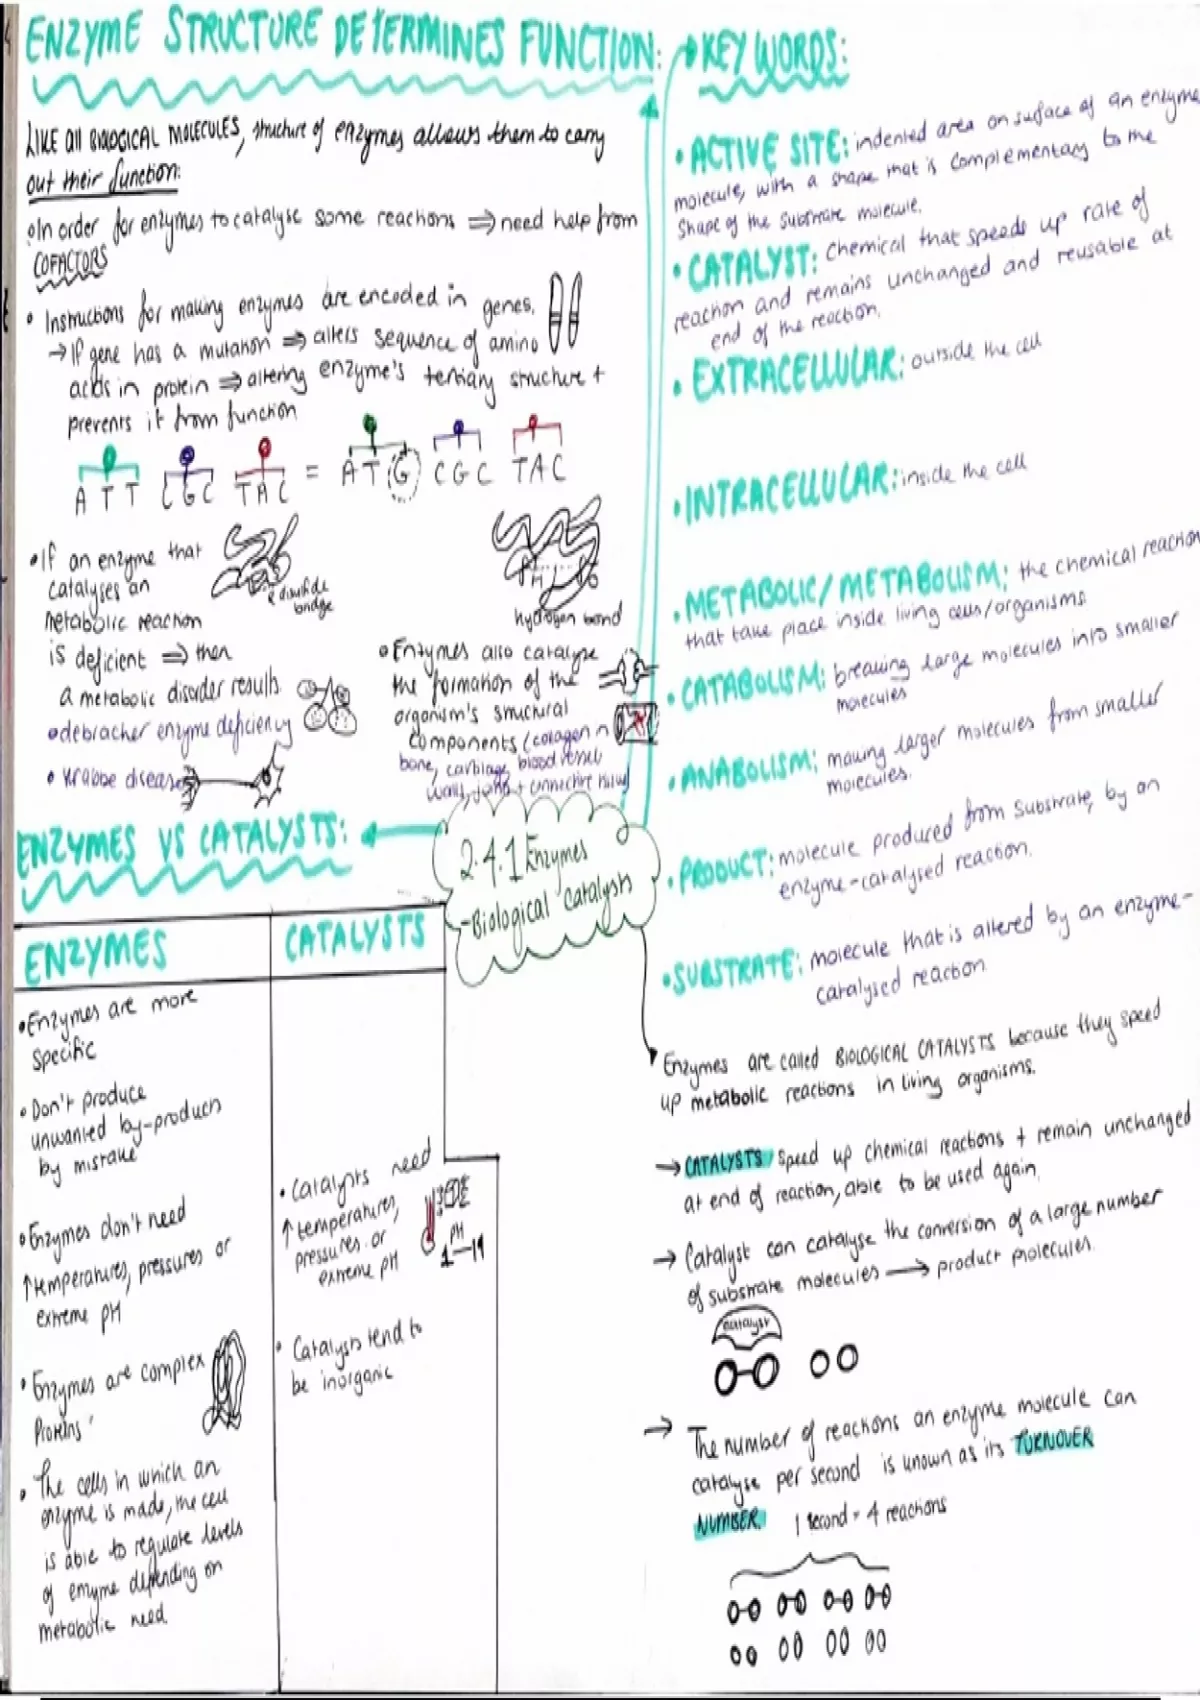 ENZYME STRUCTURE DETERMINES FUNCTION:
LIKE all BIOLOGICAL MOLECULES, structure of enzymes allows them to carry
out their function:
• In order for enzymes to catalyse some reactions ⇒ need help from
COFACTORS
• Instructions for making enzymes are encoded in genes.
→ If gene has a mutation ⇒ alters sequence of amino
acids in protein ⇒ altering enzyme's tertiary structure +
prevents it from function
A T T C G C T A C = A T G C G C T A C
• If an enzyme that
catalyses an
metabolic reaction
is deficient ⇒ then
a metabolic disorder results
• debracher enzyme deficiency
• Krabbe disease
disulfide
bridge
hydrogen bond
• Enzymes also catalyse
the formation of the
organism's structural
components (collagen in
bone, cartilage, blood vessel
walls, joints + connective tissue)
ENZYMES VS CATALYSTS:
ENZYMES
• Enzymes are more
specific
• Don't produce
unwanted by-products
by mistake
• Enzymes don't need
↑ temperatures, pressures or
extreme pH
• Enzymes are complex
Proteins
• The cells in which an
enzyme is made, the cell
is able to regulate levels
of enzyme depending on
metabolic need
CATALYSTS
• Catalysts need
↑ temperatures,
pressures or
extreme pH
PH
1—14
• Catalysts tend to
be inorganic
2.4.1 Enzymes
-Biological catalysts
KEY WORDS:
• ACTIVE SITE: indented area on surface of an enzyme
molecule, with a shape that is complementary to the
shape of the substrate molecule.
• CATALYST: Chemical that speeds up rate of
reaction and remains unchanged and reusable at
end of the reaction.
• EXTRACELLULAR: outside the cell
• INTRACELLULAR: inside the cell
• METABOLIC/METABOLISM: the chemical reaction
that take place inside living cells/organisms
• CATABOLISM: breaking large molecules into smaller
molecules
• ANABOLISM: making larger molecules from smaller
molecules.
• PRODUCT: molecule produced from substrate, by an
enzyme-catalysed reaction.
• SUBSTRATE: molecule that is altered by an enzyme-
catalysed reaction
Enzymes are called BIOLOGICAL CATALYSTS because they speed
up metabolic reactions in living organisms.
→ CATALYSTS speed up chemical reactions + remain unchanged
at end of reaction, able to be used again.
→ Catalyst can catalyse the conversion of a large number
of substrate molecules → product molecules.
catalyst
→ The number of reactions an enzyme molecule can
catalyse per second is known as its TURNOVER
NUMBER. 1 second = 4 reactions